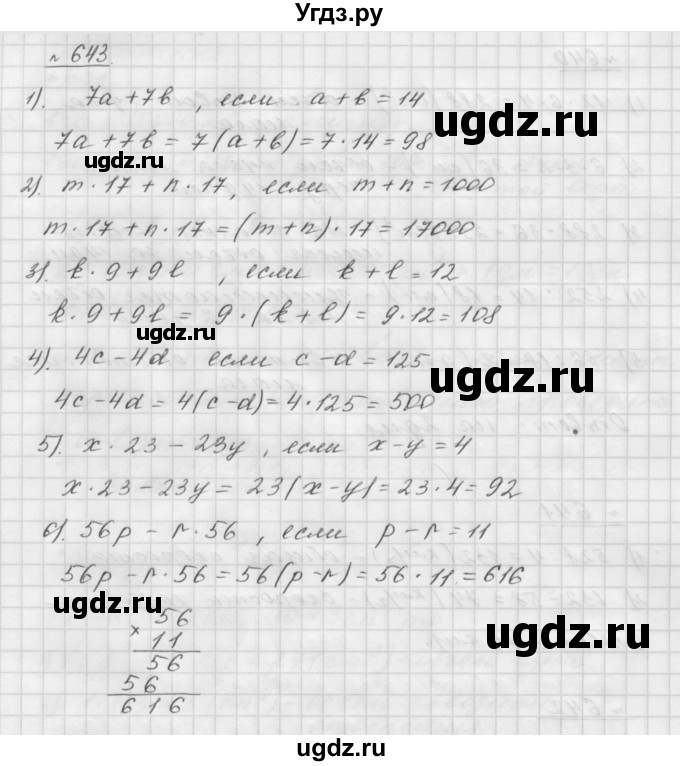 Угдз.ру
№ 643.
1). 7a+7b, если a+b=14
7a+7b=7(a+b)=7·14=98
2). m·17+n·17, если m+n=1000
m·17+n·17=(m+n)·17=17000
3). k·9+9l, если k+l=12
k·9+9l=9·(k+l)=9·12=108
ugdz.ru
4). 4c-4d если c-d=125
ugdz.ru
4c-4d=4(c-d)=4·125=500
5). x·23-23y, если x-y=4
x·23-23y=23(x-y)=23·4=92
6). 56p-r·56, если p-r=11
56p-r·56=56(p-r)=56·11=616
ugdz.ru
56
× 11
56
56
616
ugdz.ru
ugdz.ru